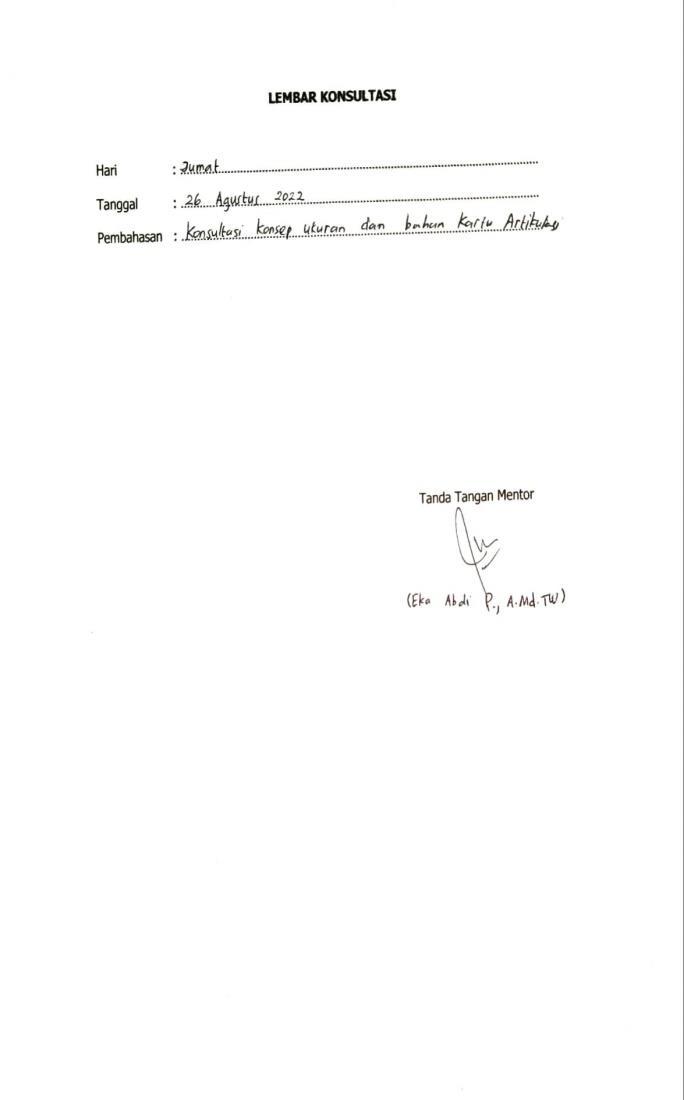 LEMBAR KONSULTASI
Hari : Jumat
Tanggal : 26 Agustus 2022
Pembahasan : Konsultasi konsep ukuran dan bahan Kartu Artikulasi
Tanda Tangan Mentor
(Eka Abdi P., A.Md.TW)